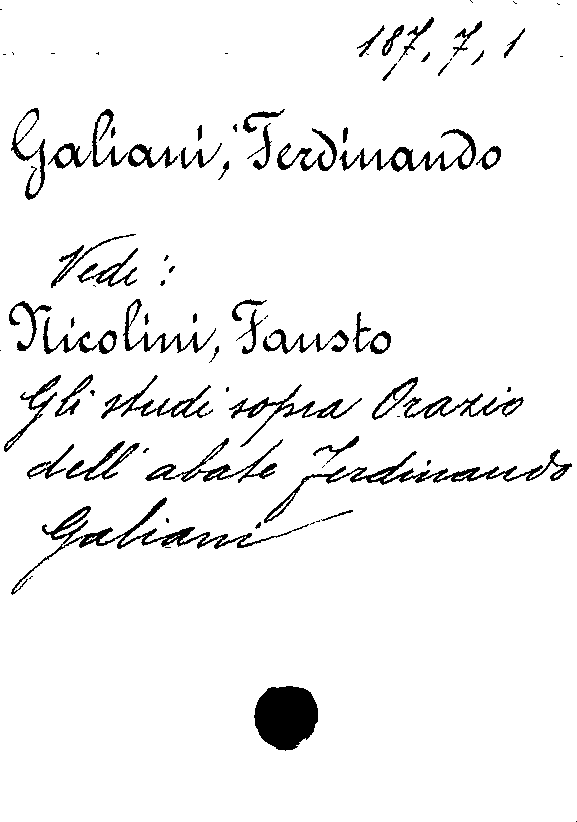 187, 7, 1
Galiani, Ferdinando
Vedi:
Nicolini, Fausto
Gli studi sopra Orazio
dell'abate Ferdinando
Galiani